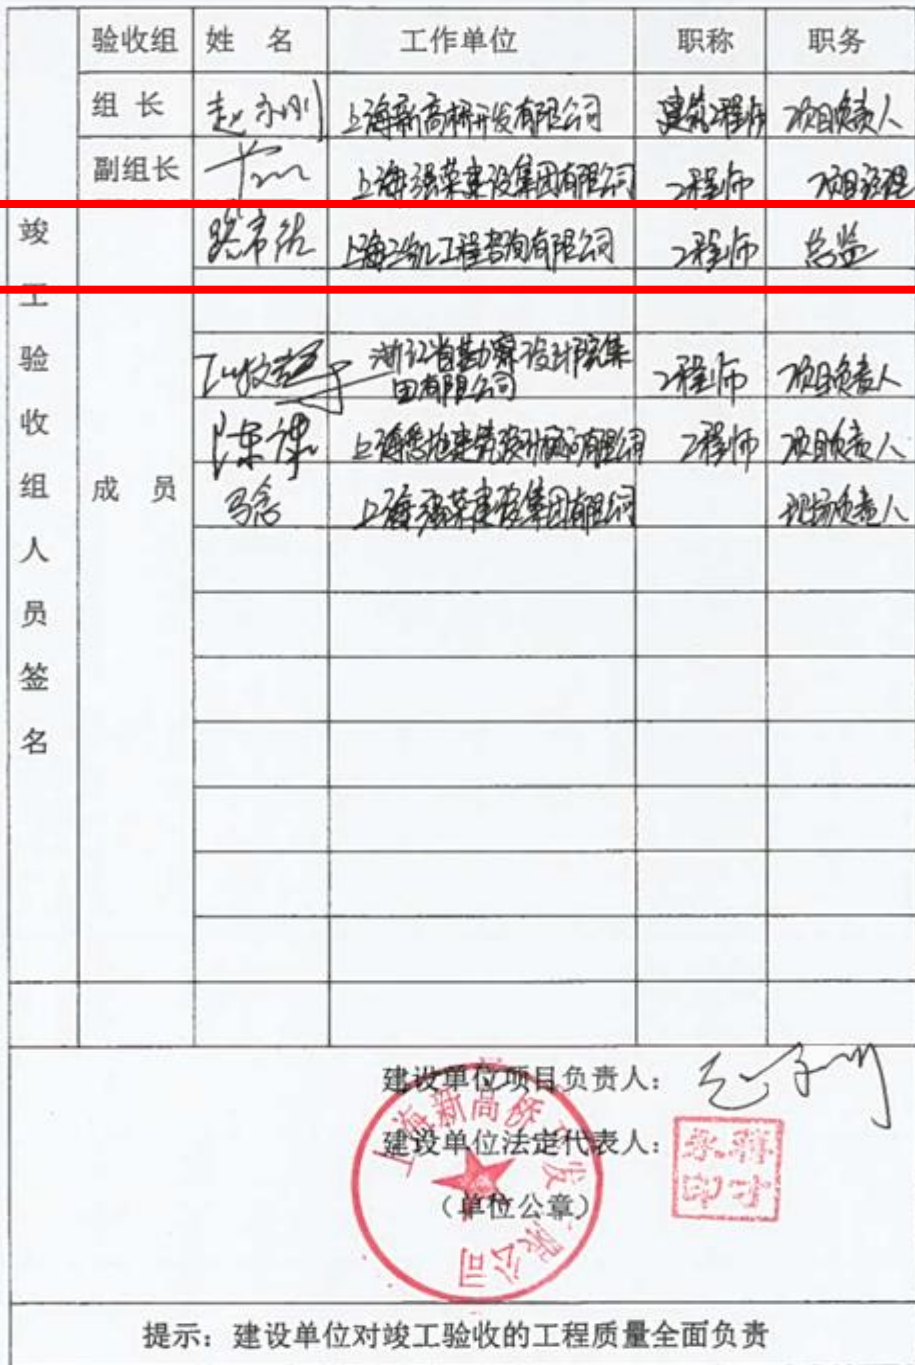 验收组 姓 名 工作单位 职称 职务
组 长 赵永刚 上海新高桥开发有限公司 建筑工程师 项目负责人
副组长 上海强荣建设集团有限公司 工程师 项目经理
上海三凯工程咨询有限公司 工程师 总监
浙江省勘察设计院集
团有限公司 工程师 项目负责人
上海悉地建筑设计顾问有限公司 工程师 项目负责人
马念 上海强荣建设集团有限公司 现场负责人
成 员
竣工验收组人员签名
建设单位项目负责人：
建设单位法定代表人：
（单位公章）
上海新高桥开发有限公司
提示：建设单位对竣工验收的工程质量全面负责